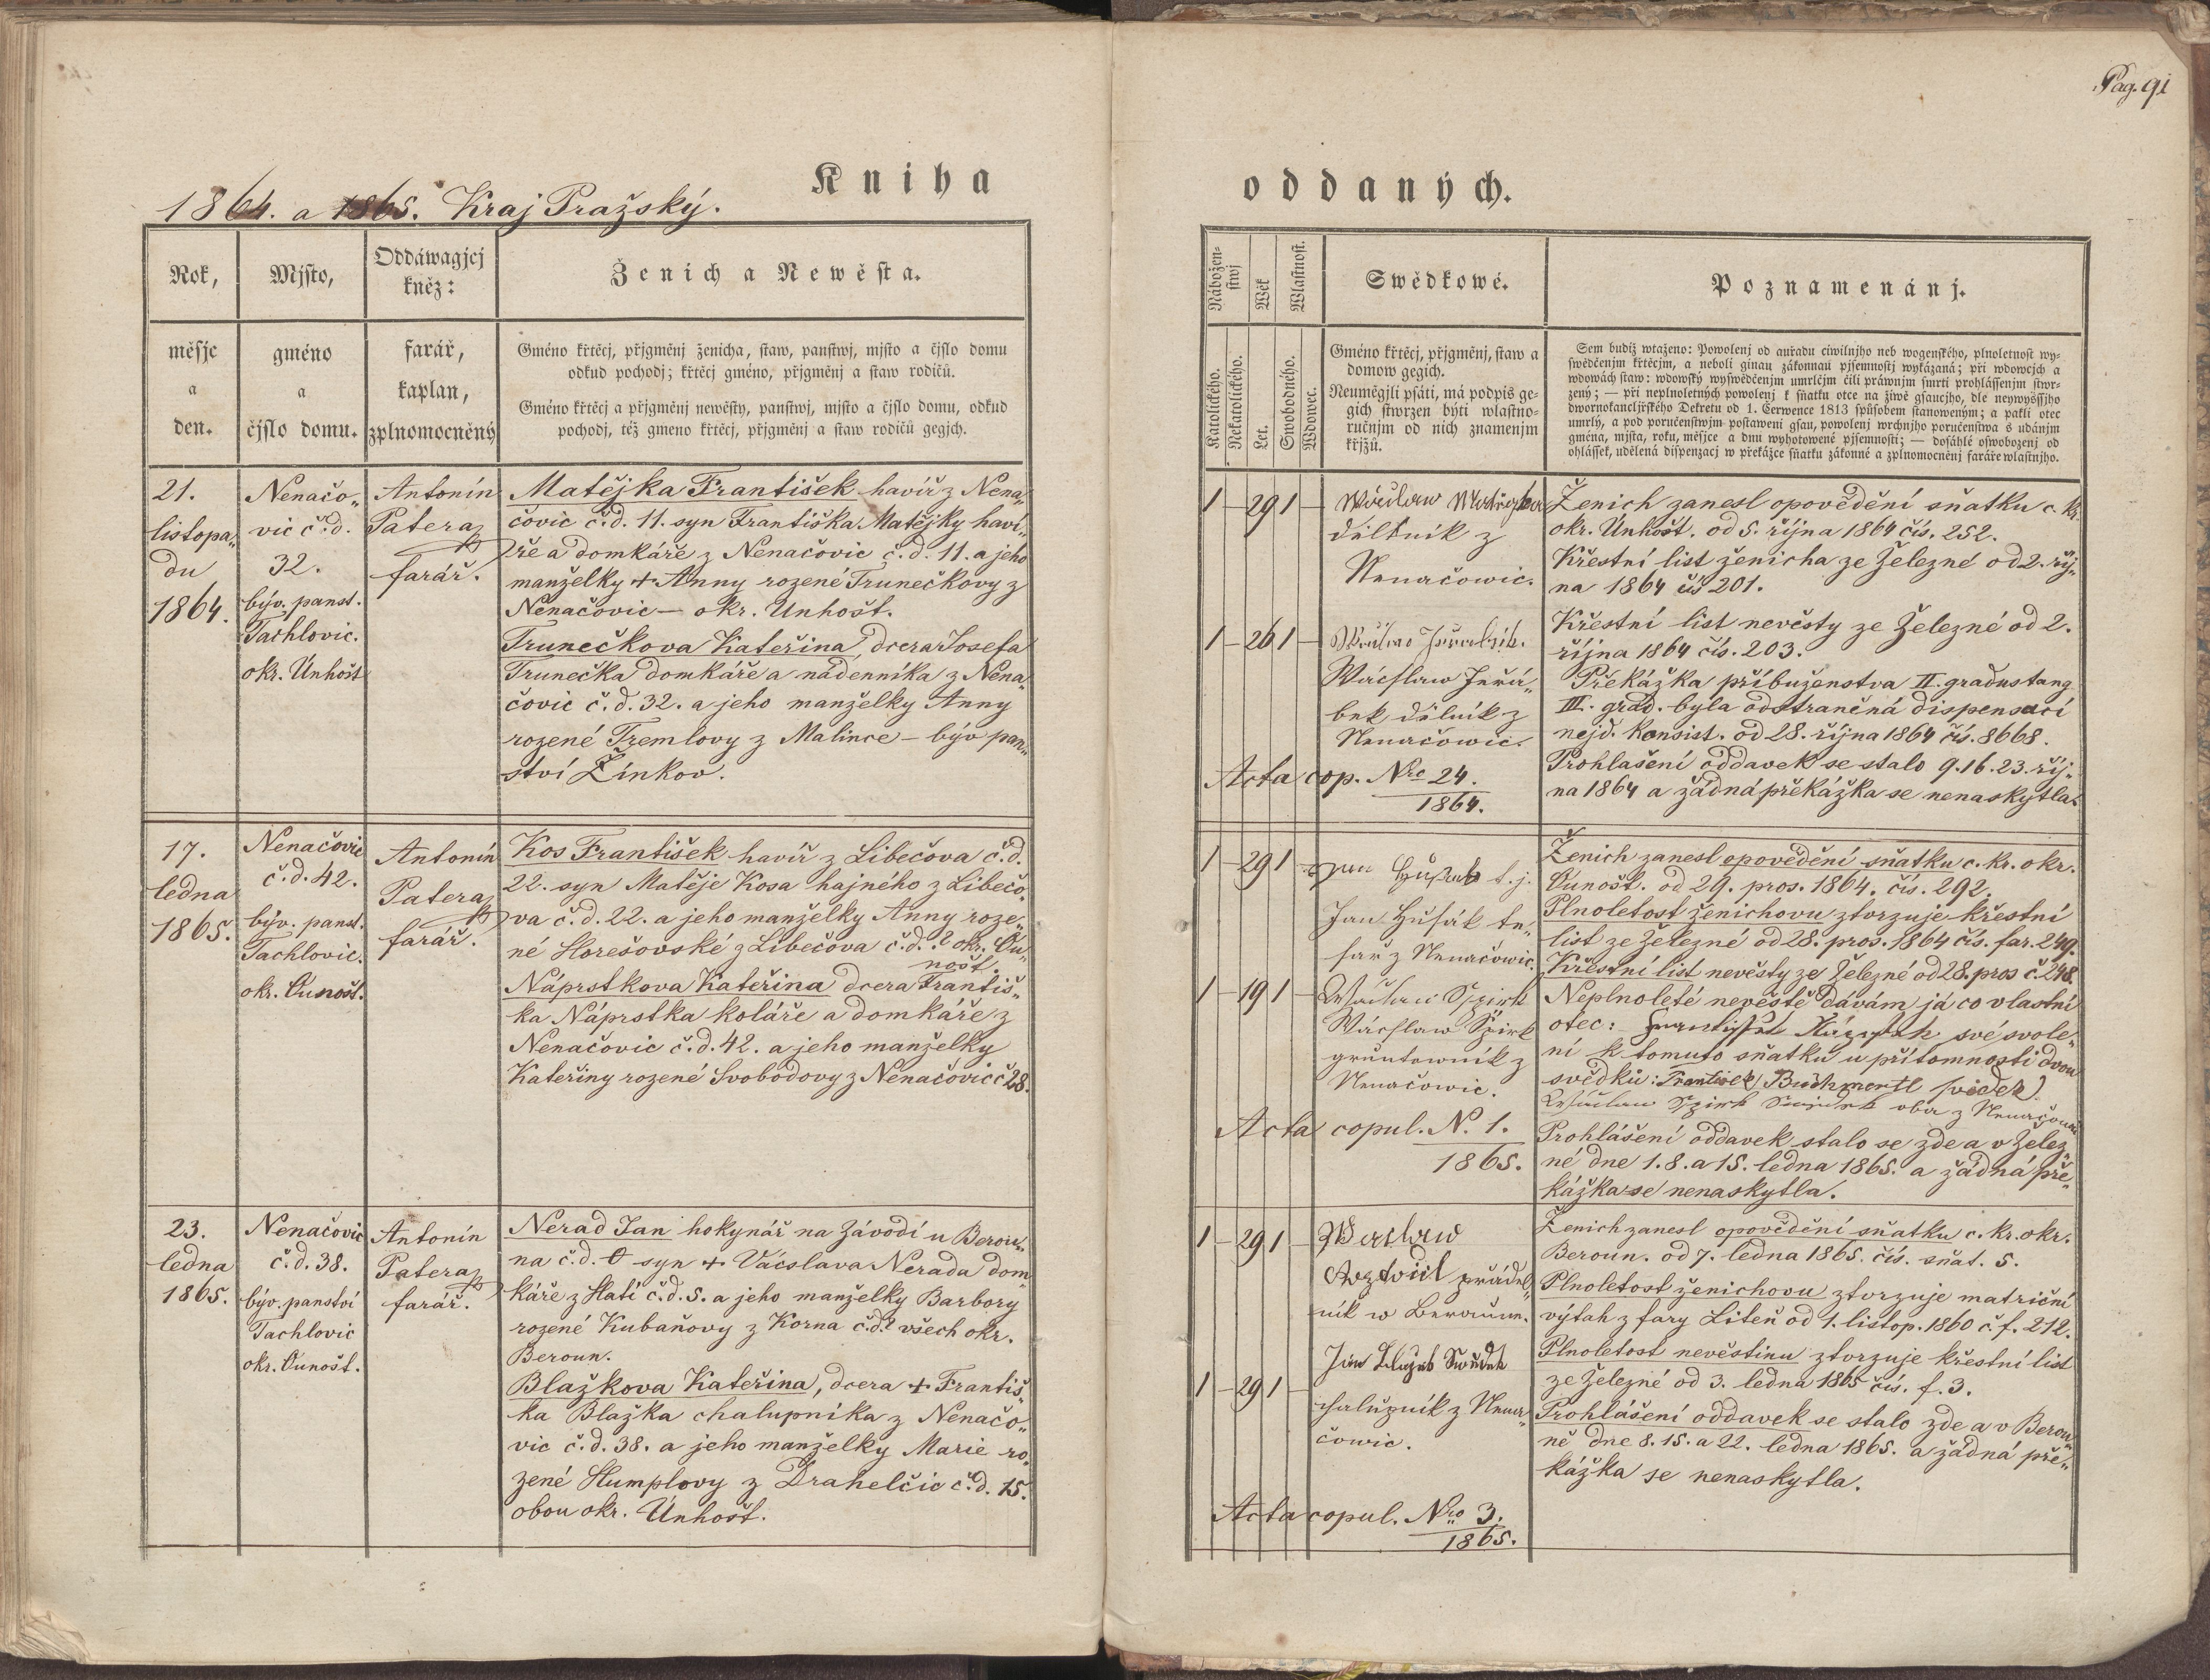 Pag. 91
1864. a 1865. Kraj Pražský.
Kniha
Rok,
Mjsto,
Oddáwagjcj
kněz:
Ženich a Newěsta.
měsjc
a
den.
gméno
a
čjslo domu.
farář,
kaplan,
zplnomocněný
Gméno křtěcj, přjgměnj ženicha, staw, panstwj, mjsto a čjslo domu
odkud pochodj; křtěcj gméno, přjgměnj a staw rodičů.
Gméno křtěcj a přjgměnj newěsty, panstwj, mjsto a čjslo domu, odkud
pochodj, též gmeno křtěcj, přjgměnj a staw rodičů gegjch.
21.
listopa„
du
1864.
Nenačo„
vic č.d.
32.
býv. panst.
Tachlovic.
okr. Unhošt
Antonín
Patera
farář.
Matějka František havíř z Nena„
čovic č.d. 11. syn Františka Matějky haví„
ře a domkáře z Nenačovic č.d. 11. a jeho
manželky + Anny rozené Trunečkovy z
Nenačovic — okr. Unhošt.
Trunečkova Kateřina, dcera Josefa
Trunečka domkáře a nádenníka z Nena„
čovic č.d. 32. a jeho manželky Anny
rozené Tremlovy z Malince – býv pan„
ství Žinkov.
17.
ledna
1865.
Nenačovic
č.d. 42.
býv. panst.
Tachlovic.
okr. Ounošt.
Antonín
Patera
farář.
Kos František havíř z Libečova č.d.
22. syn Matěje Kosa hajného z Libečo„
va č.d. 22. a jeho manželky Anny roze„
né Horešovské z Libečova č.d. ? okr. Ou„
nošt.
Náprstkova Kateřina dcera Františ„
ka Náprstka koláře a domkáře z
Nenačovic č.d. 42. a jeho manželky
Kateřiny rozené Svobodovy z Nenačovic č 28.
23.
ledna
1865.
Nenačovic
č.d. 38.
býv. panství
Tachlovic
okr. Ounošt.
Antonín
Patera
farář.
Nerad Jan hokynář na Závodí u Berou„
na č.d. 0 syn + Václava Nerada dom„
káře z Hatí č.d. 5. a jeho manželky Barbory
rozené Kubaňovy z Korna č.d.? všech okr.
Beroun.
Blažkova Kateřina, dcera + Františ„
ka Blažka chalupníka z Nenačo„
vic č.d. 38. a jeho manželky Marie ro„
zené Humplovy z Drahelčic č.d. 15.
obou okr. Unhošt.
oddaných.
Nábožen-
stwj
Wěk
Wlastnost.
Swědkowé.
Poznamenánj.
Katolického.
Nekatolického.
Let.
Swobodného.
Wdowec.
Gméno křtěcj, přjgměnj, staw a
domow gegich.
Neuměgjli psáti, má podpis ge-
gich stwrzen býti wlastno-
ručnjm od nich znamenjm
křjžů.
Sem budiž wtaženo: Powolenj od auřadu ciwilnjho neb wogenského, plnoletnost wy-
swědčenjm křtěcjm, a neboli ginau zákonnau pjsemnostj wykázaná; při wdowcjch a
wdowách staw: wdowský wyswědčenjm umrlčjm čili práwnjm smrti prohlássenjm stwr-
zený; — při neplnoletných powolenj k sňatku otce na žiwě gsaucjho, dle neywyššjho
dwornokancljřského Dekretu od 1. Července 1813 spůsobem stanoweným; a pakli otec
umrlý, a pod poručenstwjm postaweni gsau, powolenj wrchnjho poručenstwa s udánjm
gména, mjsta, roku, měsjce a dnu wyhotowené pjsemnosti; — dosáhlé oswobozenj od
ohlášsek, udělená dispensacj w překážce sňatku zákonné a zplnomocněnj faráře wlastnjho.
1 – 29 1 –
Wáclaw Matiegka
dělbník z
Nenačowic.
1 – 26 1 –
Wácslaw Jeřá„
bek dělník z
Nenačowic.
Acta cop. Nro 24.
1864.
Ženich zanesl opovědění sňatku c. kr.
okr. Unhošt. od 5. října 1864 čís. 252.
Křestní list ženicha ze Železné od 2. říj„
na 1864 čís 201.
Křestní list nevěsty ze Železné od 2.
října 1864 čís. 203.
Překážka příbuženstva II. gradus tang
III. grad. byla odstraněná dispensací
nejd. konsist. od 28. října 1864 čís. 8668.
Prohlašení oddavek se stalo 9. 16. 23. říj„
na 1864 a žádná překážka se nenaskytla.
1 – 29 1 –
Jan Hušak t. j.
Jan Hušák te„
sař z Nenačowic.
1 – 19 1 –
Wáclaw Špirk
Wácslaw Špirk
gruntowník z
Nenačowic.
Acta copul. N. 1.
1865.
Ženich zanesl opovědění sňatku c. kr. okr.
Ounošt. od 29. pros. 1864. čís. 292.
Plnoletost ženichovu ztvrzuje křestní
list ze Železné od 28. pros. 1864 čís. far. 249.
Křestní list nevěsty ze Železné od 28. pros č. 248.
Neplnoleté nevěstě dávám já co vlastní
otec: František své svole„
ní k tomuto sňatku u přítomnosti dvou
svědků: Frantisek
Wáclaw Spirk Swiedek oba z Nenačowic
Prohlášení oddavek stalo se zde a v Želez„
né dne 1. 8. a 15. ledna 1865. a žádná pře„
kážka se nenaskytla.
1 – 29 1 –
Waclaw
přádel„
ník w Berouně.
1 – 29 1 –
Jan Blažek Swědek
chalupník z Nena„
čowic.
Acta copul. Nro 3.
1865.
Ženich zanesl opovědění sňatku c. kr. okr.
Beroun. od 7. ledna 1865. čís. sňat. 5.
Plnoletost ženichovu ztvrzuje matriční
výtah z fary Liteň od 1. listop. 1860 č. f. 212.
Plnoletost nevěstinu ztvrzuje křestní list
ze Železné od 3. ledna 1865 čís. f. 3.
Prohlášení oddavek se stalo zde a v Berou„
ně dne 8. 15. a 22. ledna 1865. a žádná pře„
kážka se nenaskytla.